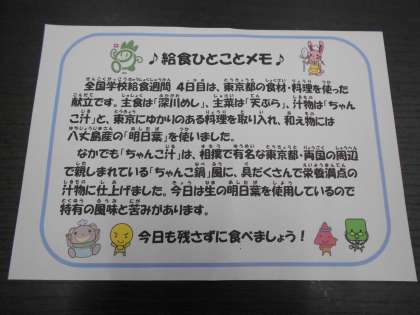 ♪給食ひとことメモ♪
全国学校給食週間 4日目は、東京都の食材・料理を使った
献立です。主食は「深川めし」、主菜は「天ぷら」、汁物は「ちゃん
こ汁」と、東京にゆかりのある料理を取り入れ、和え物には
八丈島産の「明日葉」を使いました。
なかでも「ちゃんこ汁」は、相撲で有名な東京都・両国の周辺
で親しまれている「ちゃんこ鍋」風に、具だくさんで栄養満点の
汁物に仕上げました。今日は生の明日葉を使用しているので
特有の風味と苦みがあります。
今日も残さずに食べましょう！